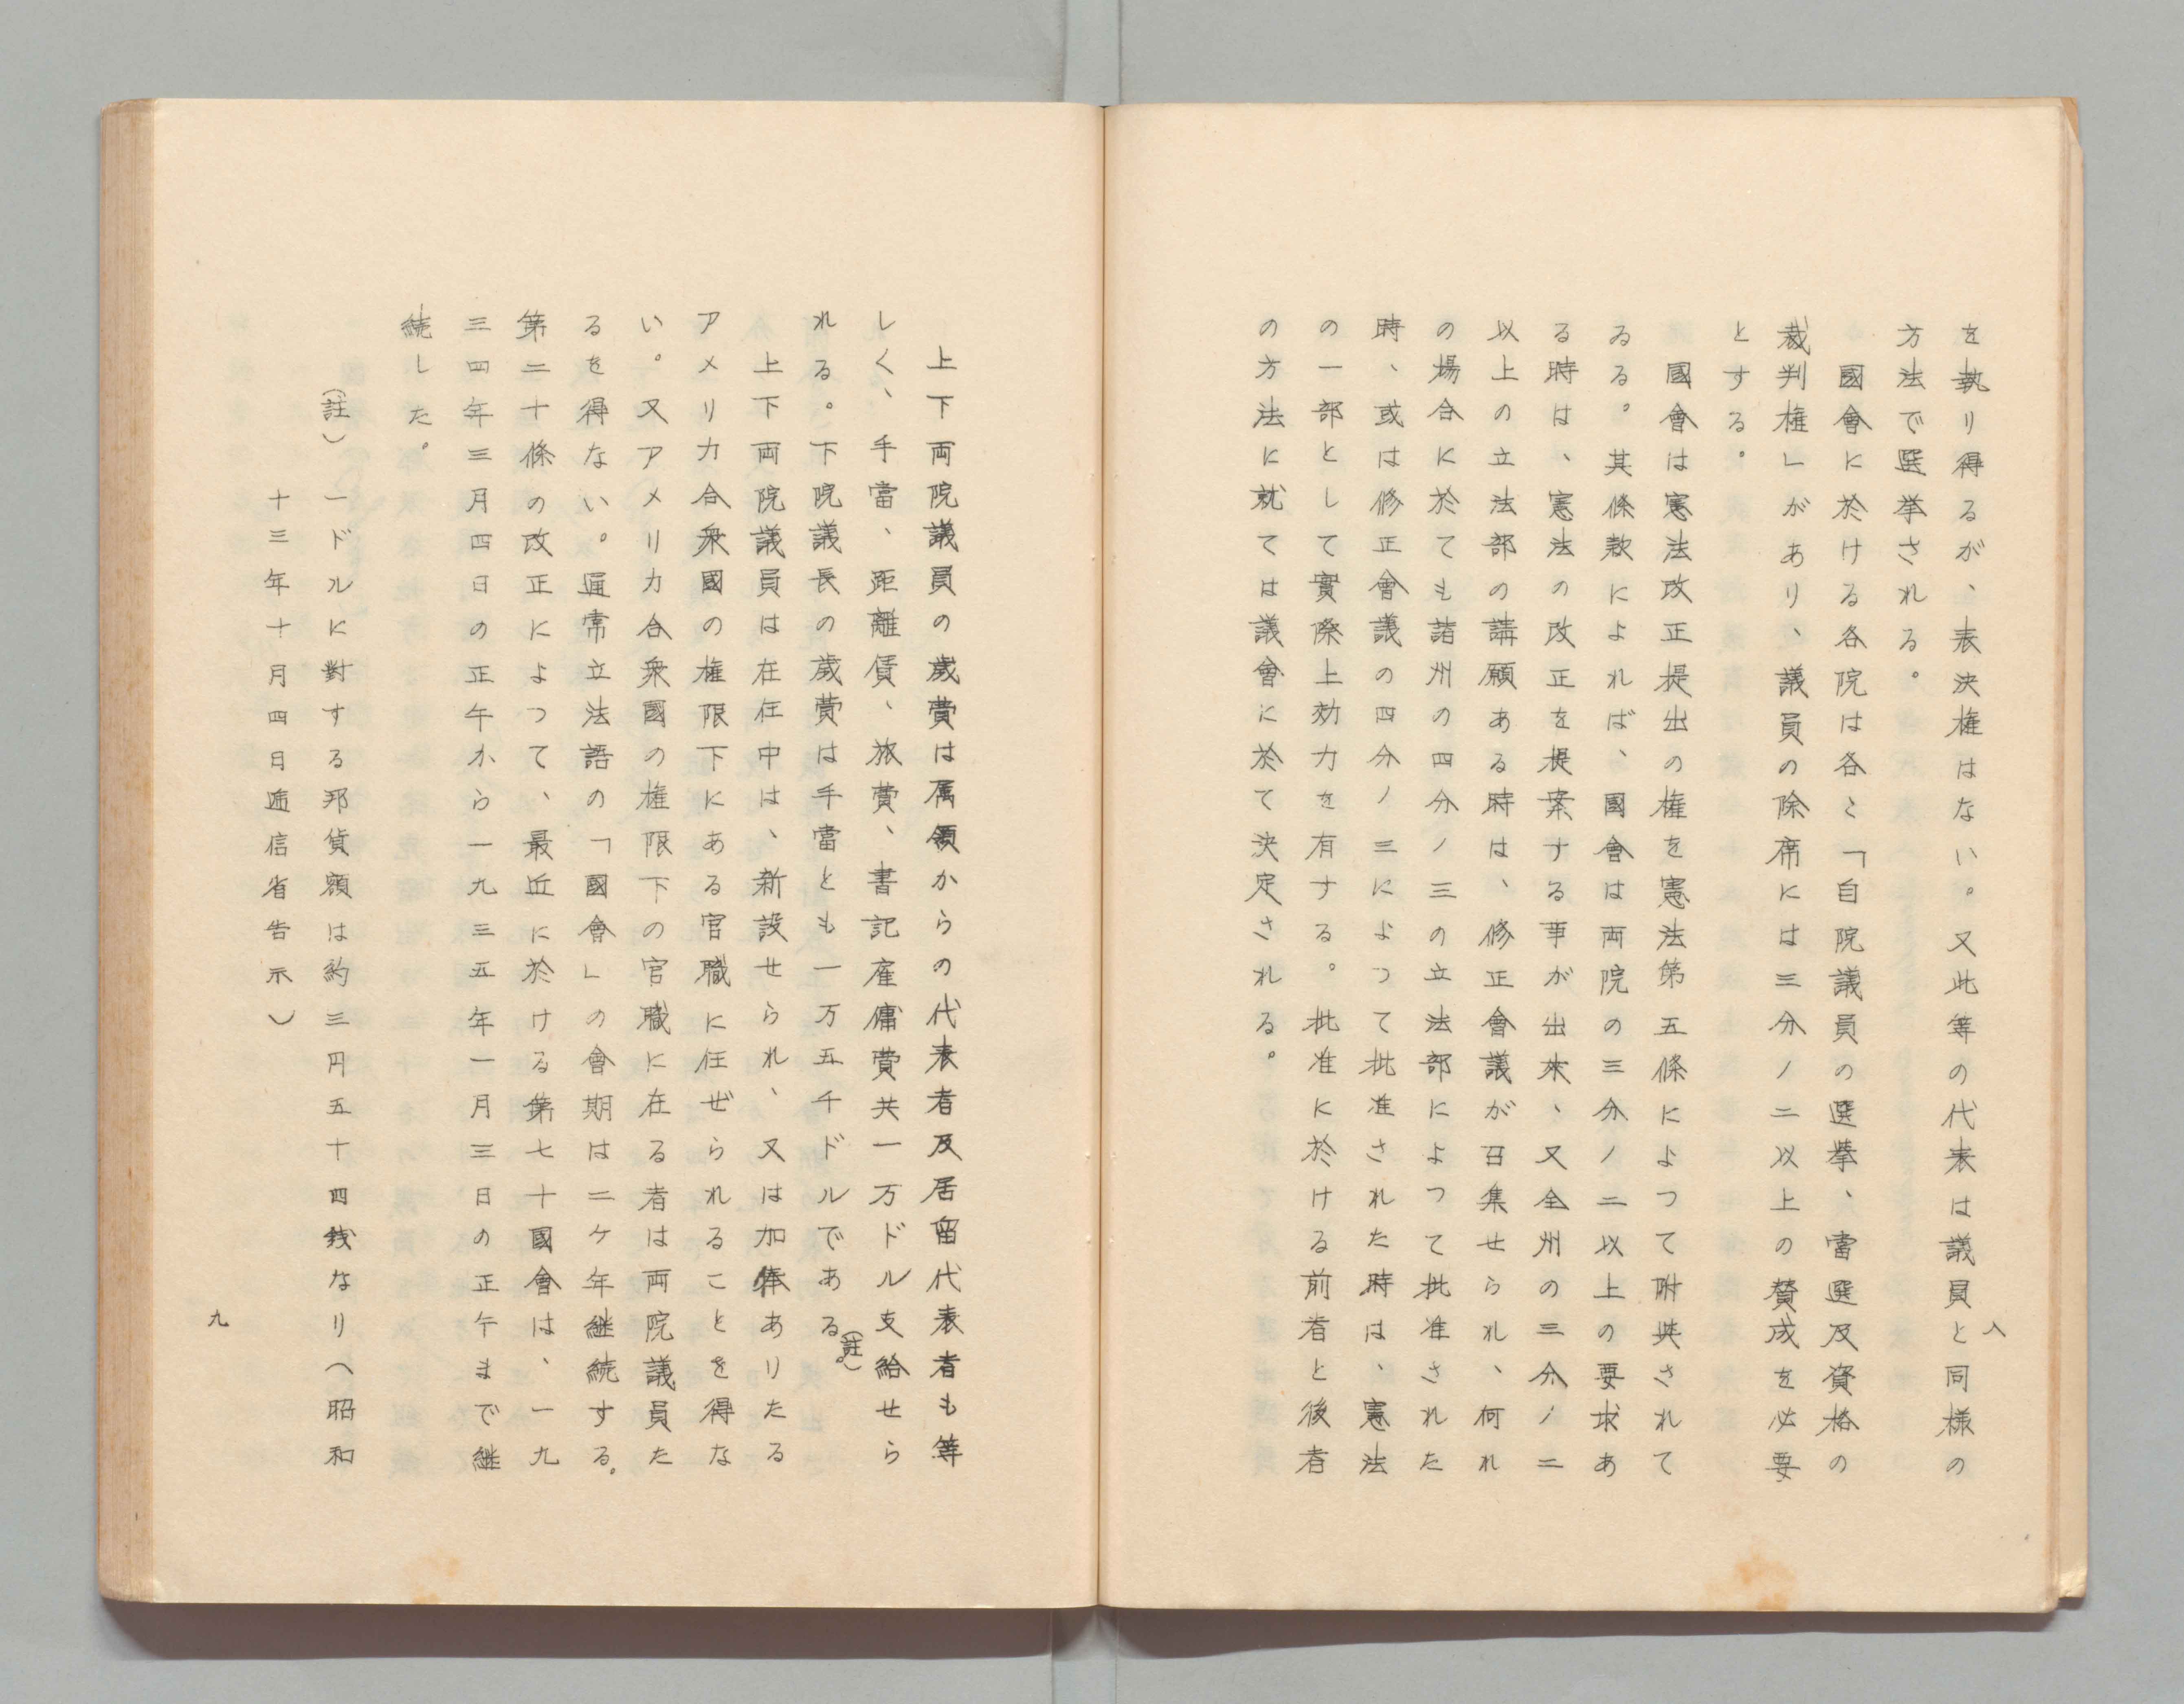 を執り得るが、表決権はない。又此等の代表は議員と同様の
方法で選挙される。
國會に於ける各院は各々「自院議員の選挙、當選及資格の
裁判権」があり、議員の除席には三分ノ二以上の賛成を必要
とする。
國會は憲法改正提出の権を憲法第五條によつて附與されて
ゐる。其條款によれば、國會は両院の三分ノ二以上の要求あ
る時は、憲法の改正を提案する事が出来、又全州の三分ノ二
以上の立法部の請願ある時は、修正會議が召集せられ、何れ
の場合に於ても諸州の四分ノ三の立法部によつて批准された
時、或は修正會議の四分ノ三によつて批准された時は、憲法
の一部として實際上効力を有する。批准に於ける前者と後者
の方法に就ては議會に於て決定される。
八
上下両院議員の歳費は属領からの代表者及居留代表者も等
しく、手當、距離賃、旅費、書記雇傭費共一万ドル支給せら
れる。下院議長の歳費は手當とも一万五千ドルである。(註)
上下両院議員は在任中は、新設せられ、又は加俸ありたる
アメリカ合衆國の権限下にある官職に任ぜられることを得な
い。又アメリカ合衆國の権限下の官職に在る者は両院議員た
るを得ない。通常立法語の「國會」の會期は二ケ年継続する。
第二十條の改正によつて、最近に於ける第七十國會は、一九
三四年三月四日の正午から一九三五年一月三日の正午まで継
続した。
(註)　一ドルに對する邦貨額は約三円五十四銭なり(昭和
十三年十月四日逓信省告示)
九